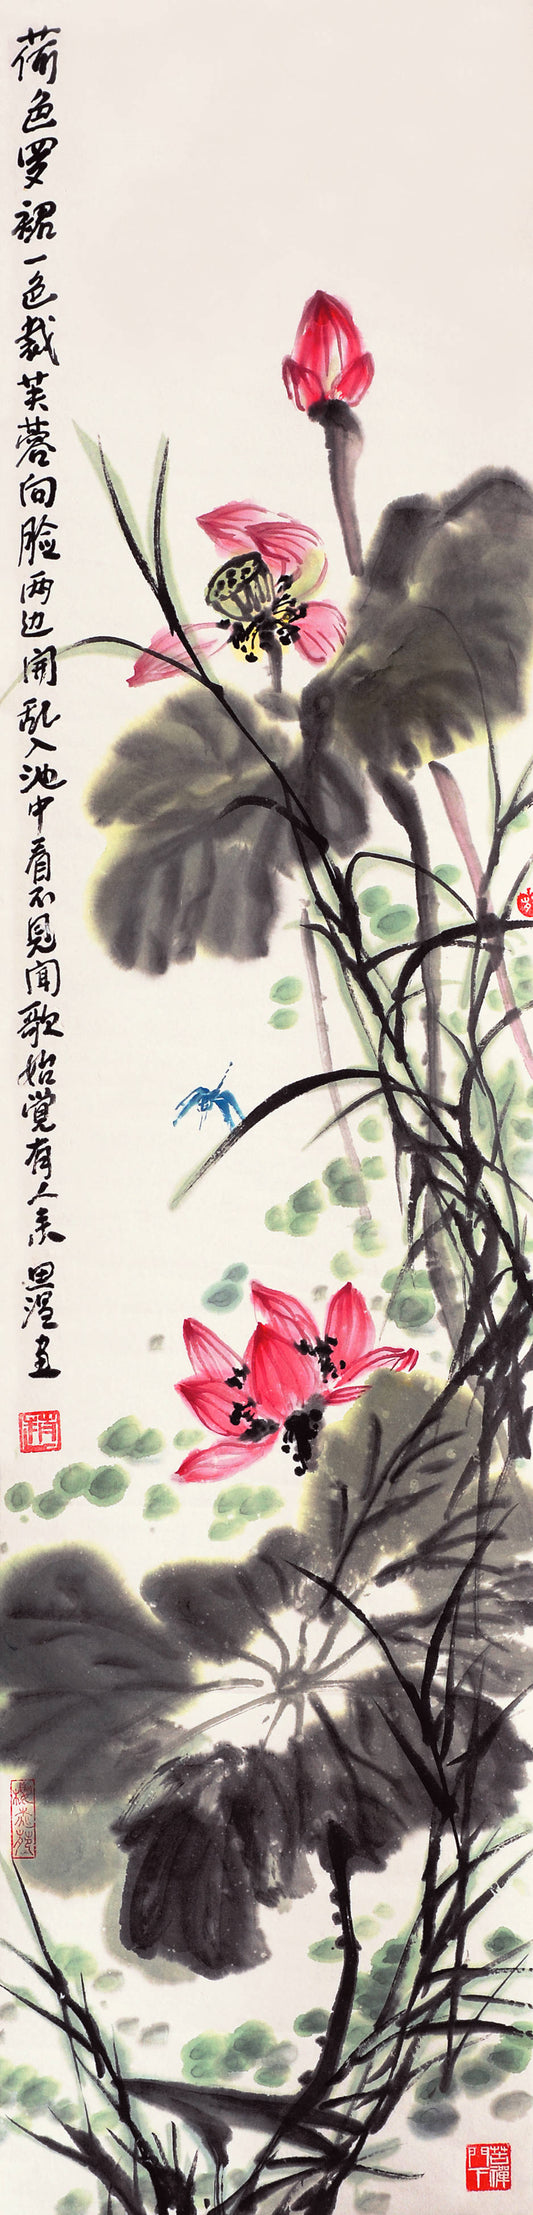 荷色罗裙一色裁芙蓉向脸两边开乱入池中看不见闻歌始觉有人来 思温画
苦禅门下